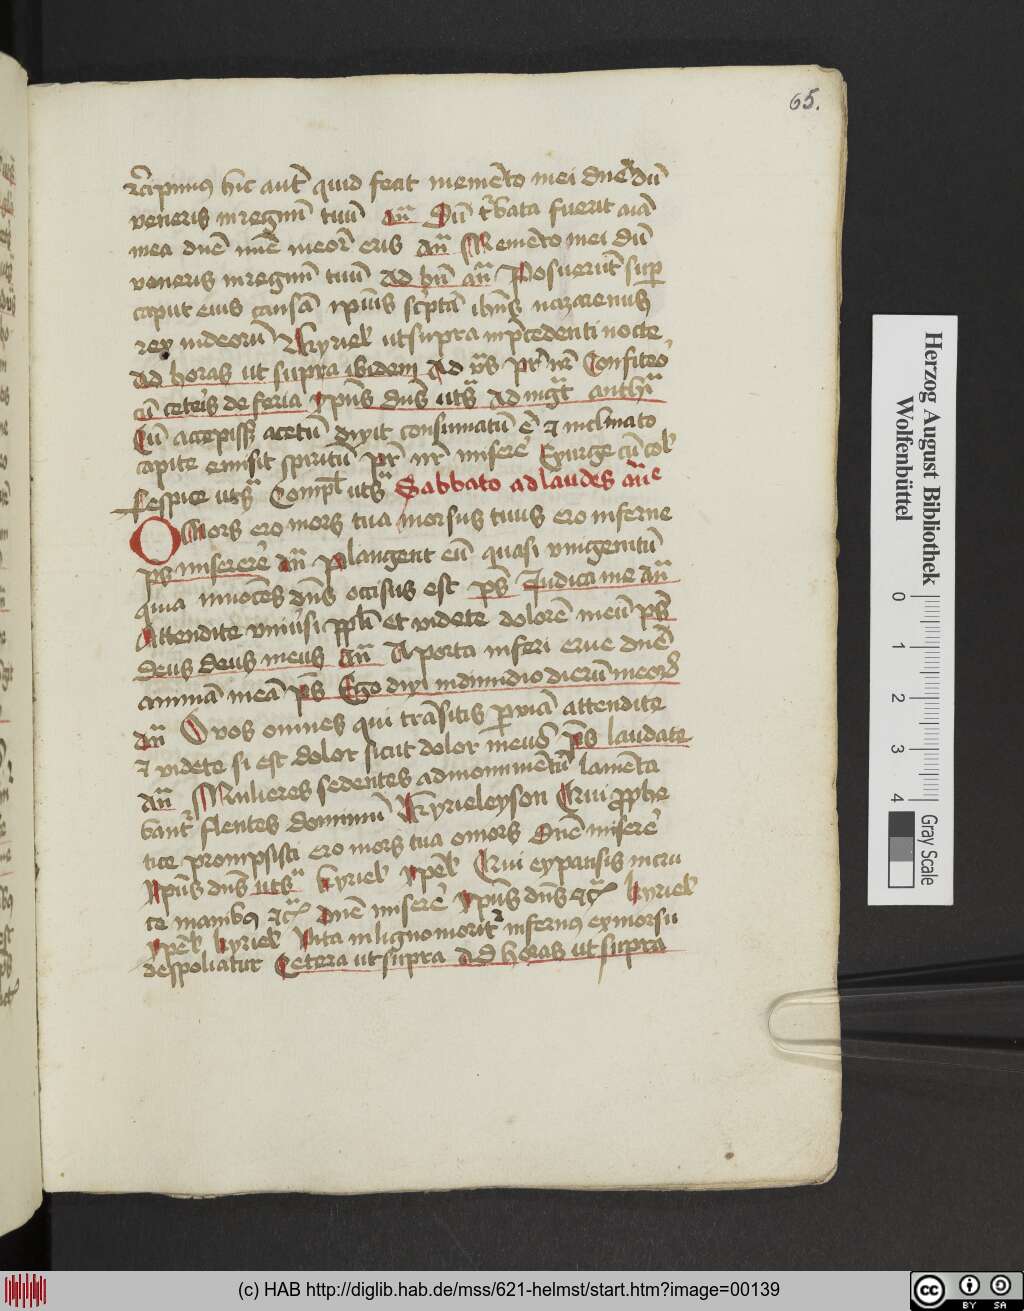 65.
rcipimus hic aut quid fecit memēto mei dne dū
veneris in regnū tuū an Dū t'bata fuerit aīa
mea dnē mīe meor eris an Memēto mei dū
veneris in regnū tuū Ad bn̄ an Posuerūt sup
caput eius causā ip̄ius sc̄ptā ihūs nazarenus
rex iudeorū kyriel ut supra in p̄cedenti nocte
Ad horas ut supra ibidem Ad p̄s pr̄ nr̄ Confiteo
cū ceteris de feria xpūs dn̄s uts Ad mgt anthī
Cū accepiss acetū dixit consumatū ē et inclinato
capite emisit spiritū pr̄ nr̄ miserē Exurge cū col
Vespere uts Compl uts Sabbato ad laudes añe
O Mors ero mors tua morsus tuus ero inferne
ps miserere an Plangent eū quasi vnigenitū
quia innocēs dn̄s occisus est ps Judica me an
Attendite vniūsi ppli et videte dolorē meū ps
Deus deus meus an A porta inferi erue dnē
animā meā ps Ego dixi in dimidio dierū meor
an O vos omnes qui trāsitis p viā attendite
et videte si est dolor sicut dolor meus ps laudate
an Mulieres sedentes ad monumētū lamēta
bant flentes dominū kyrieleyson Qui prophe
tice prompsisti ero mors tua o mors Dnē miserē
xpūs dn̄s uts kyriel xpēl Qui expansis in cru
ce manibus etc dnē miserē xpūs dn̄s etc kyriel
xpēl kyriel Vita in ligno morit infernus ex morsu
despoliatur Cetera ut supra Ad horas ut supra
Herzog August Bibliothek
Wolfenbüttel
0 1 2 3 4
Gray Scale
(c) HAB http://diglib.hab.de/mss/621-helmst/start.htm?image=00139
cc BY SA